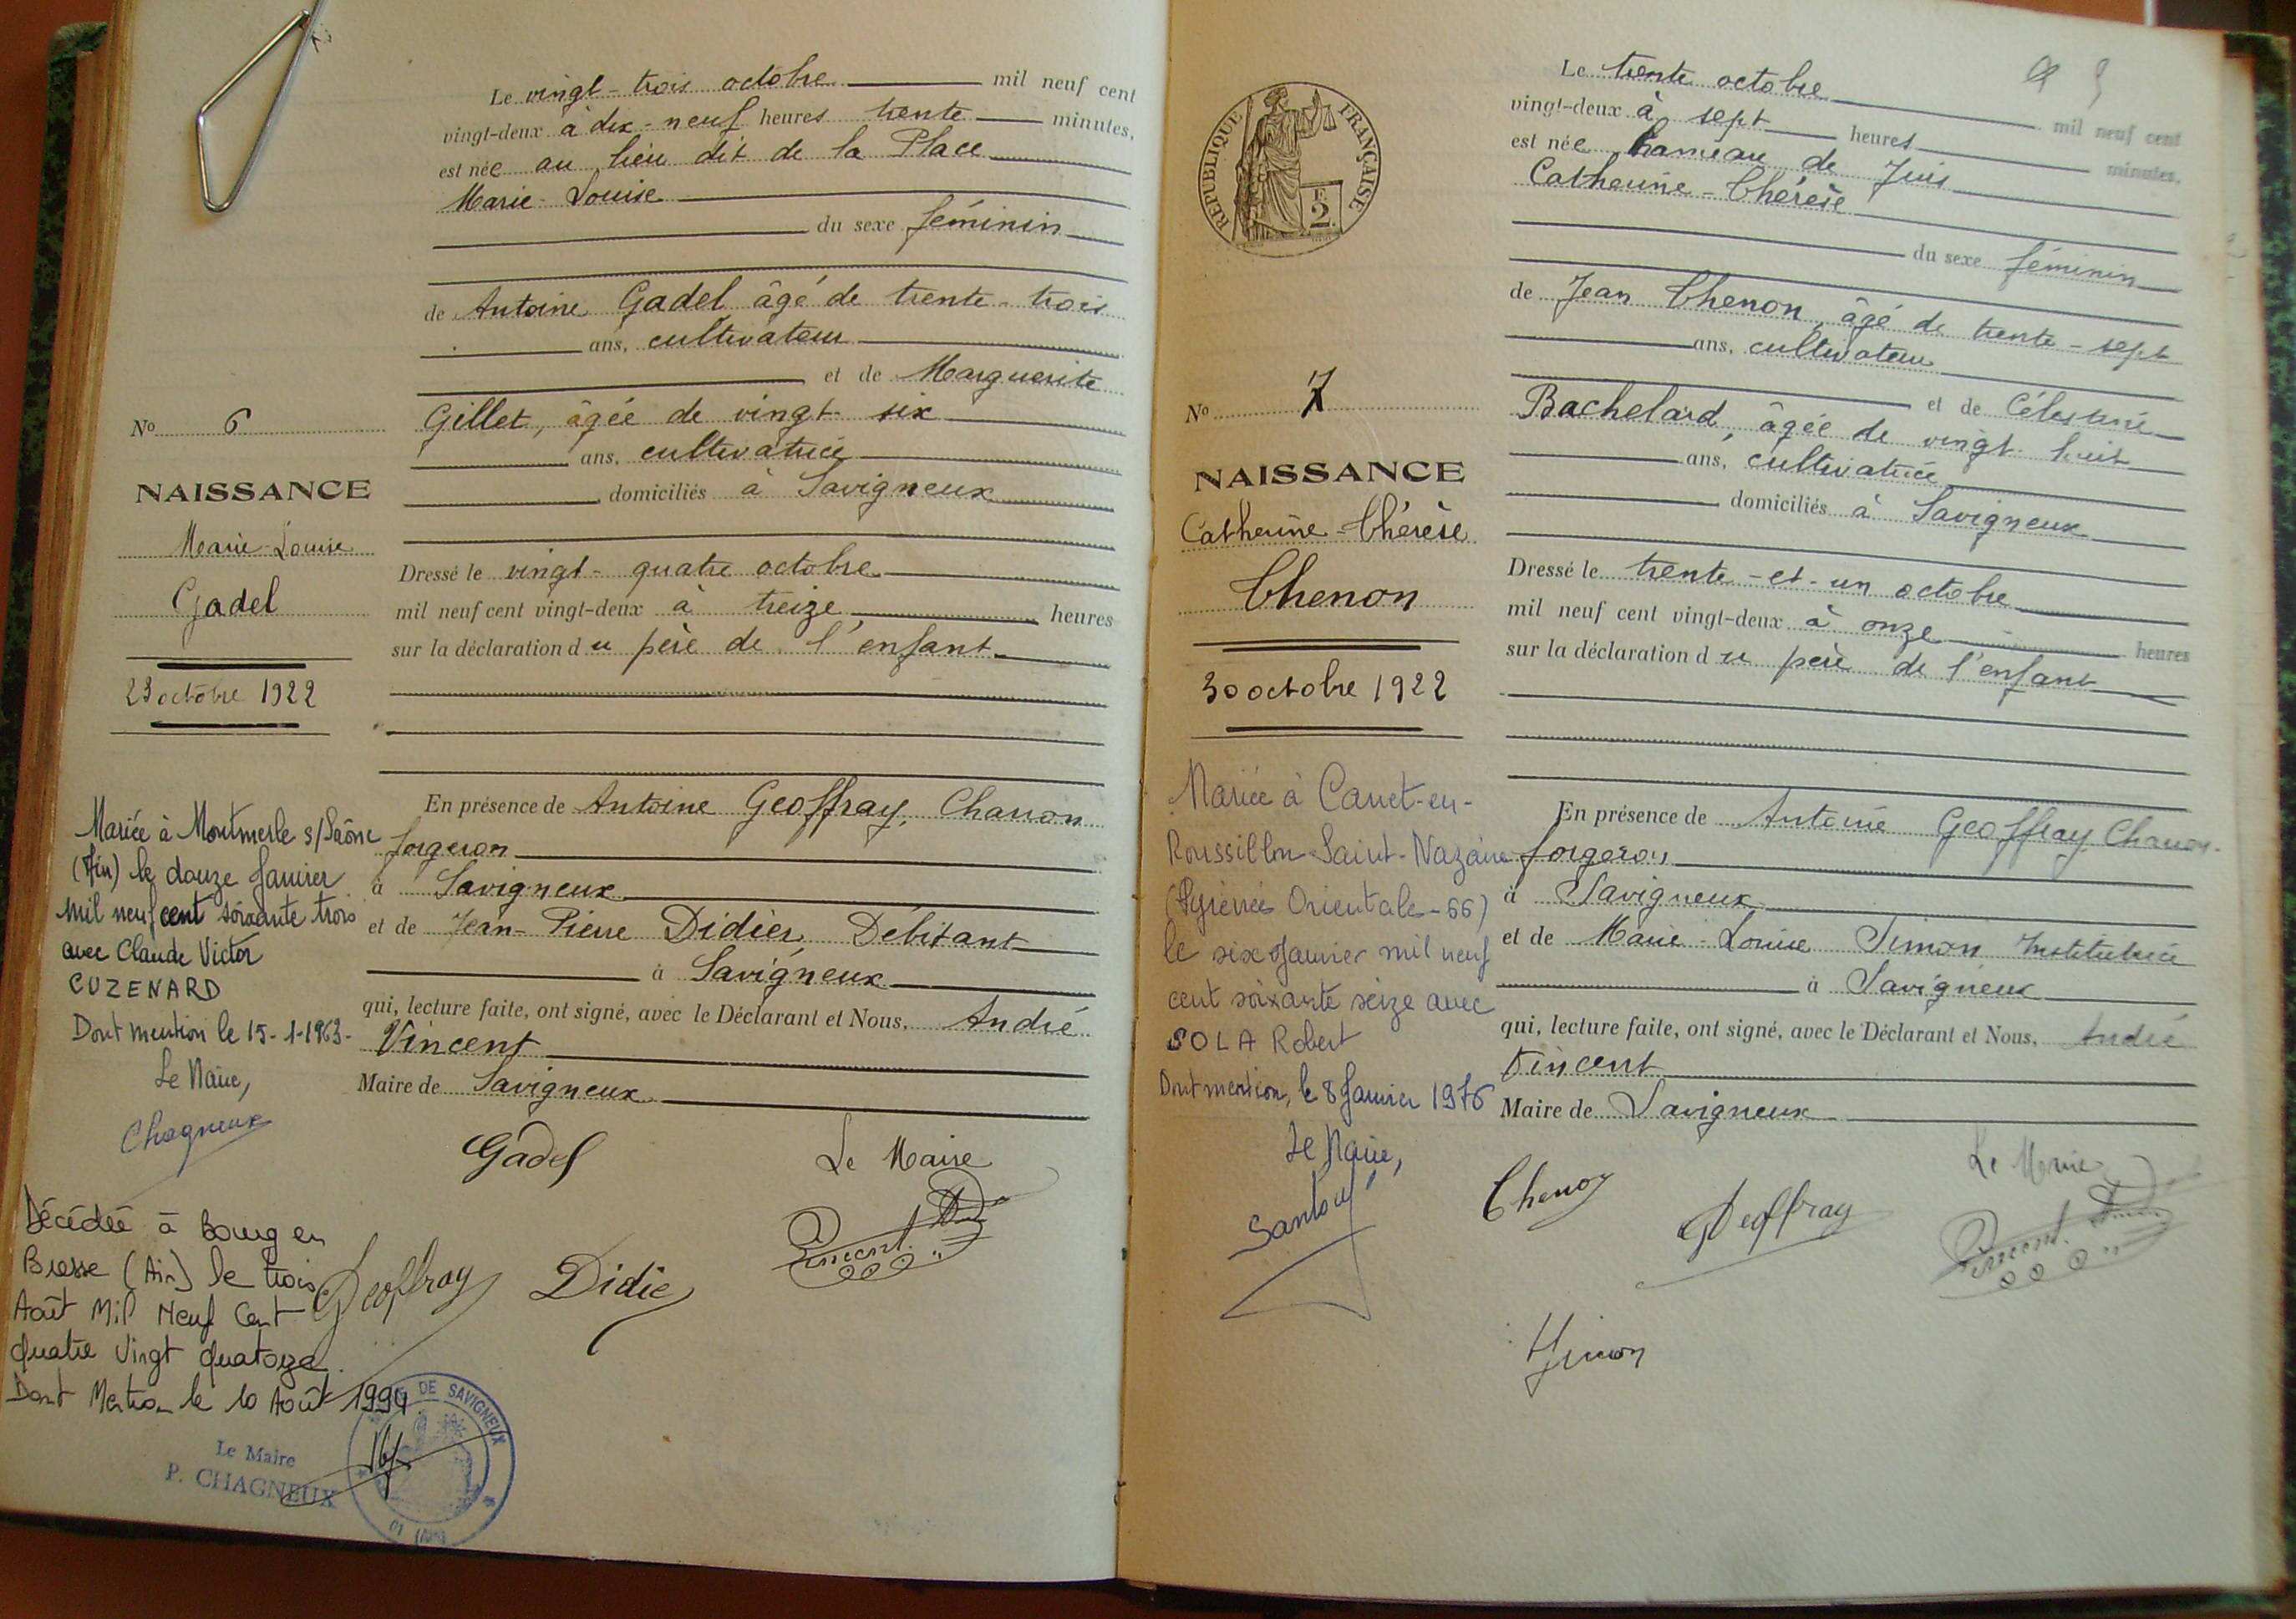 Le vingt-trois octobre mil neuf cent
vingt-deux à dix-neuf heures trente minutes,
est née au lieu dit de la Place
Marie-Louise
du sexe féminin
de Antoine Gadel âgé de trente-trois
ans, cultivateur
et de Marguerite
Gillet, âgée de vingt-six
ans, cultivatrice
domiciliés à Savigneux
Dressé le vingt-quatre octobre
mil neuf cent vingt-deux à treize heures
sur la déclaration du père de l'enfant
En présence de Antoine Geoffray, Charron
forgeron
à Savigneux
et de Jean-Pierre Didier, Débitant
à Savigneux
qui, lecture faite, ont signé, avec le Déclarant et Nous, André
Vincent
Maire de Savigneux
Gadel
Le Maire
Vincent
Geoffray
Didier
No 6
NAISSANCE
Marie-Louise
Gadel
23 octobre 1922
Mariée à Montmerle s/Saône
(Ain) le douze Janvier
mil neuf cent soixante trois
avec Claude Victor
CUZENARD
Dont mention le 15-1-1963-
Le Maire,
Chagneux
Décédée à Bourg en
Bresse (Ain) le trois
Août Mil Neuf Cent
Quatre Vingt Quatorze.
Dont Mention le 10 Août 1994.
Le Maire
P. CHAGNEUX
DE SAVIGNEUX
01 (AIN)
RÉPUBLIQUE FRANÇAISE
F.
2
Le trente octobre mil neuf cent
vingt-deux à sept heures minutes,
est née hameau de Juis
Catherine-Thérèse
du sexe féminin
de Jean Thenon, âgé de trente-sept
ans, cultivateur
et de Célestine
Bachelard, âgée de vingt-huit
ans, cultivatrice
domiciliés à Savigneux
Dressé le trente-et-un octobre
mil neuf cent vingt-deux à onze heures
sur la déclaration du père de l'enfant
En présence de Antoine Geoffray Charron
forgeron
à Savigneux
et de Marie-Louise Simon Institutrice
à Savigneux
qui, lecture faite, ont signé, avec le Déclarant et Nous, André
Vincent
Maire de Savigneux
Thenon
Geoffray
Le Maire
Vincent
Simon
No 7
NAISSANCE
Catherine-Thérèse
Thenon
30 octobre 1922
Mariée à Canet-en-
Roussillon Saint-Nazaire
(Pyrénées Orientales-66)
le six Janvier mil neuf
cent soixante seize avec
SOLA Robert
Dont mention, le 8 Janvier 1976
Le Maire,